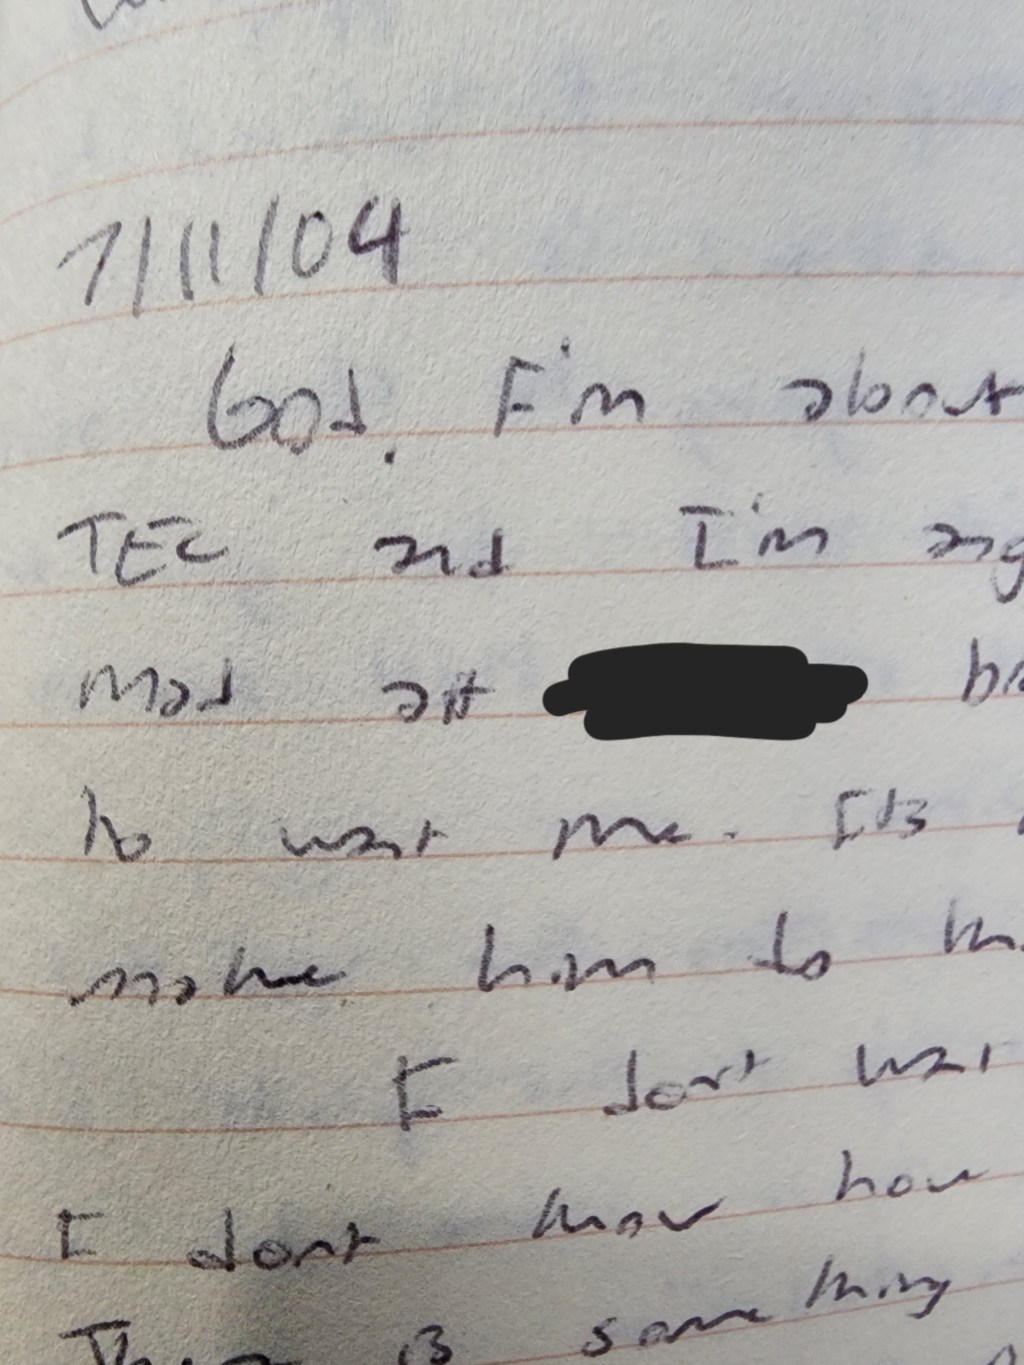 7/11/04
God, I'm about
TEC and I'm ang
Mad at
to want me. It's
make him to th
I don't wan
I don't know how
There is something